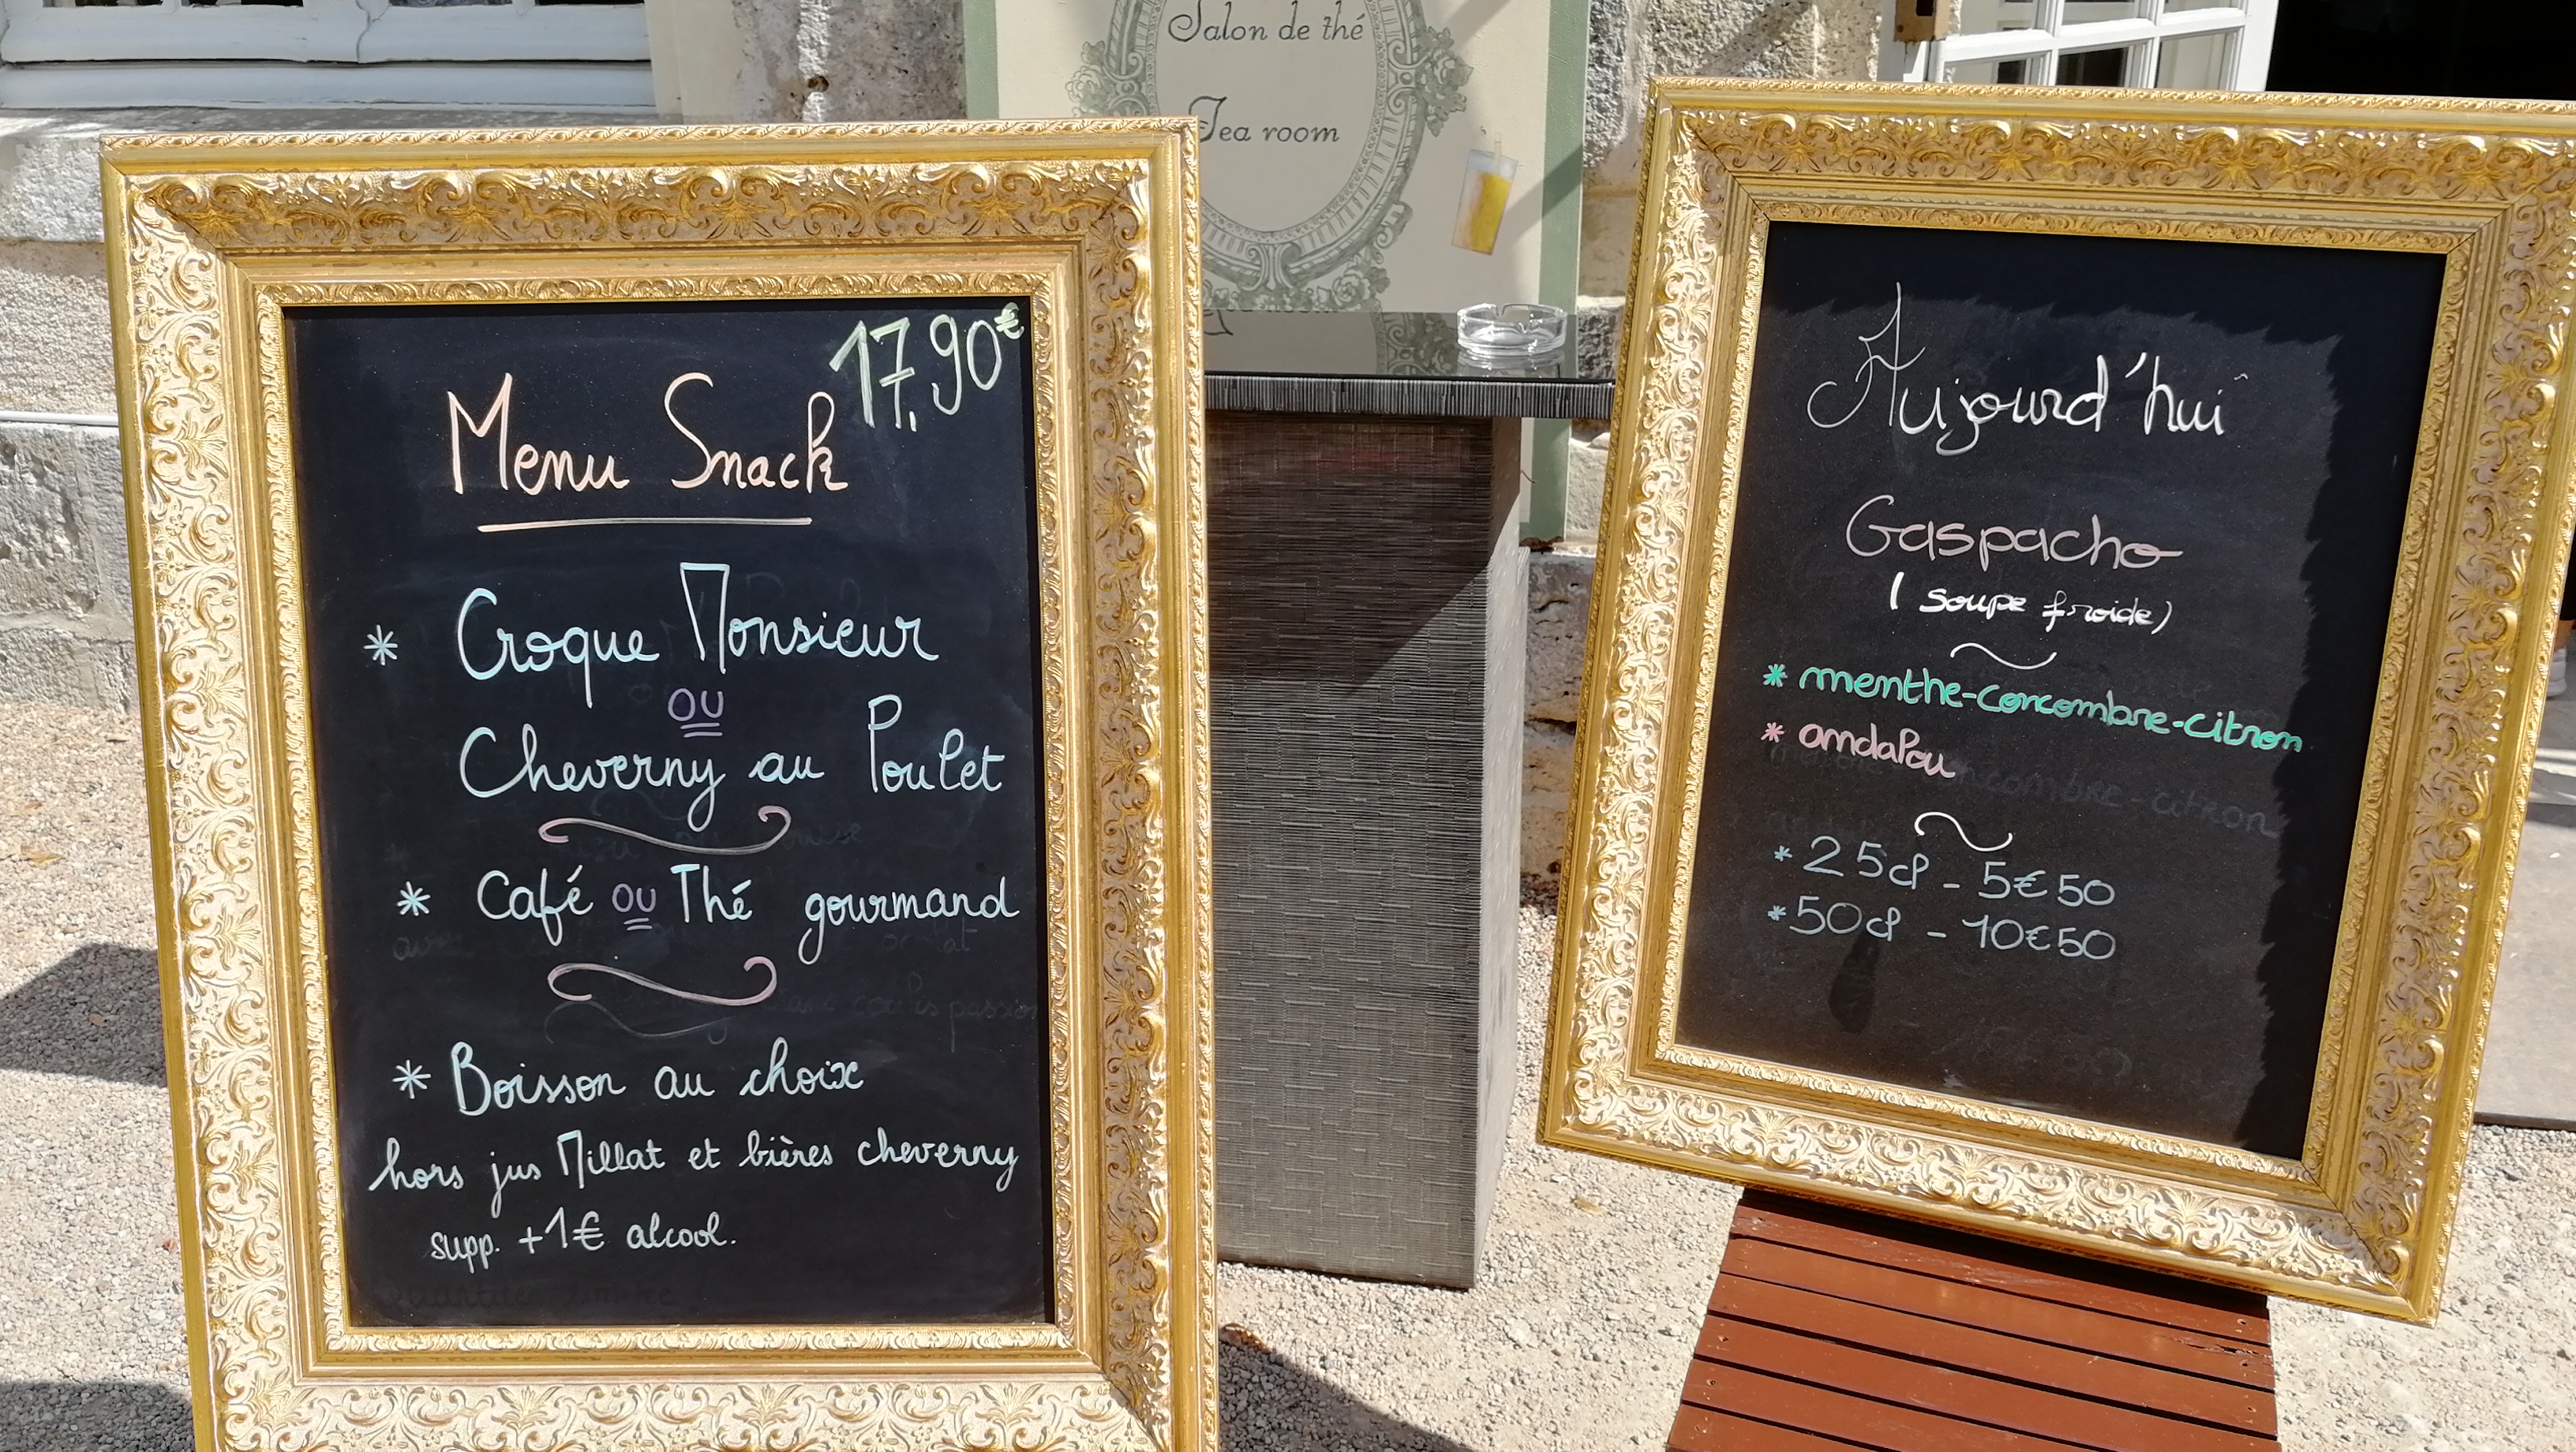 Salon de thé
Tea room
17.90€
Menu Snack
* Croque Monsieur
ou
Cheverny au Poulet
* Café ou Thé gourmand
* Boisson au choix
hors jus Millat et bières cheverny
supp. +1€ alcool.
Aujourd'hui
Gaspacho
(soupe froide)
* menthe-concombre-citron
* andalou
* 25cl - 5€50
* 50cl - 10€50